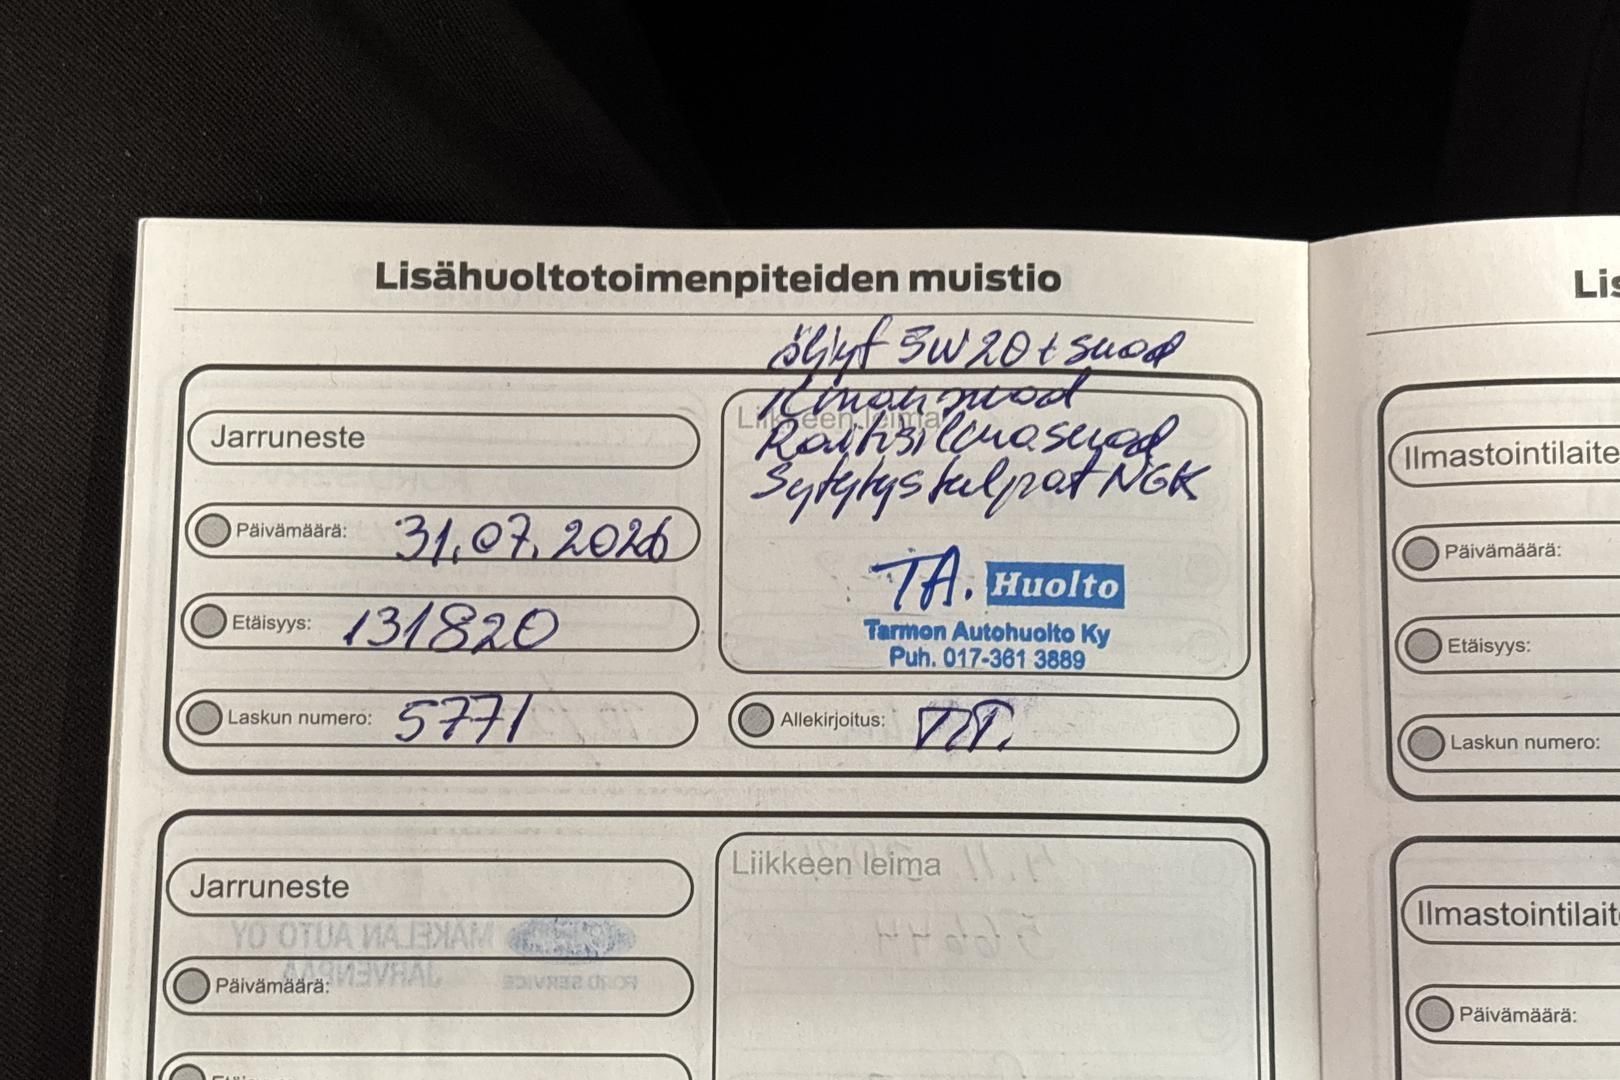 Lisähuoltotoimenpiteiden muistio
öljyt 5W20 + suod
Ilmansuod
Raitisilmasuod
Sytytystulpat NGK
Liikkeen leima
Jarruneste
Päivämäärä: 31.07.2026
Etäisyys: 131820
Laskun numero: 5771
TA. Huolto
Tarmon Autohuolto Ky
Puh. 017-361 3889
Allekirjoitus:
Jarruneste
Liikkeen leima
Päivämäärä:
MÄKELÄN AUTO OY
JÄRVENPÄÄ
FORD SERVICE
Lis
Ilmastointilaite
Päivämäärä:
Etäisyys:
Laskun numero:
Ilmastointilait
Päivämäärä: